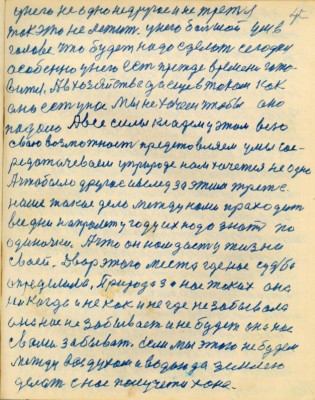 у него не одно не другое и не третье
так это не летит. у него большой ум в
голове что будет надо сделать сегодня
особенно у него ест прежде времени гото
вит. А в хозяйстве да еще в таком как
оно ест у нас Мы не хочем чтобы оно
падало А все силы кладем у этом всю
свою возможност предстовляем умы сос-
редотачеваем у природе нам хочется не одно
А чтобы было другое и вслед за этим трете.
наше такое дело между нами проходит
все дни напролет у году их надо знат по
одиночки. А что он нам даст у жизни
своей. Двар этого места где нас судьба
определила, Природа за нас таких она
никогда и не как и не где не забывала
она нас не забывает и не будет она нас
с вами забыват. если мы этого не будем
между воздухом и водою да землею
делат с нас получети хана.